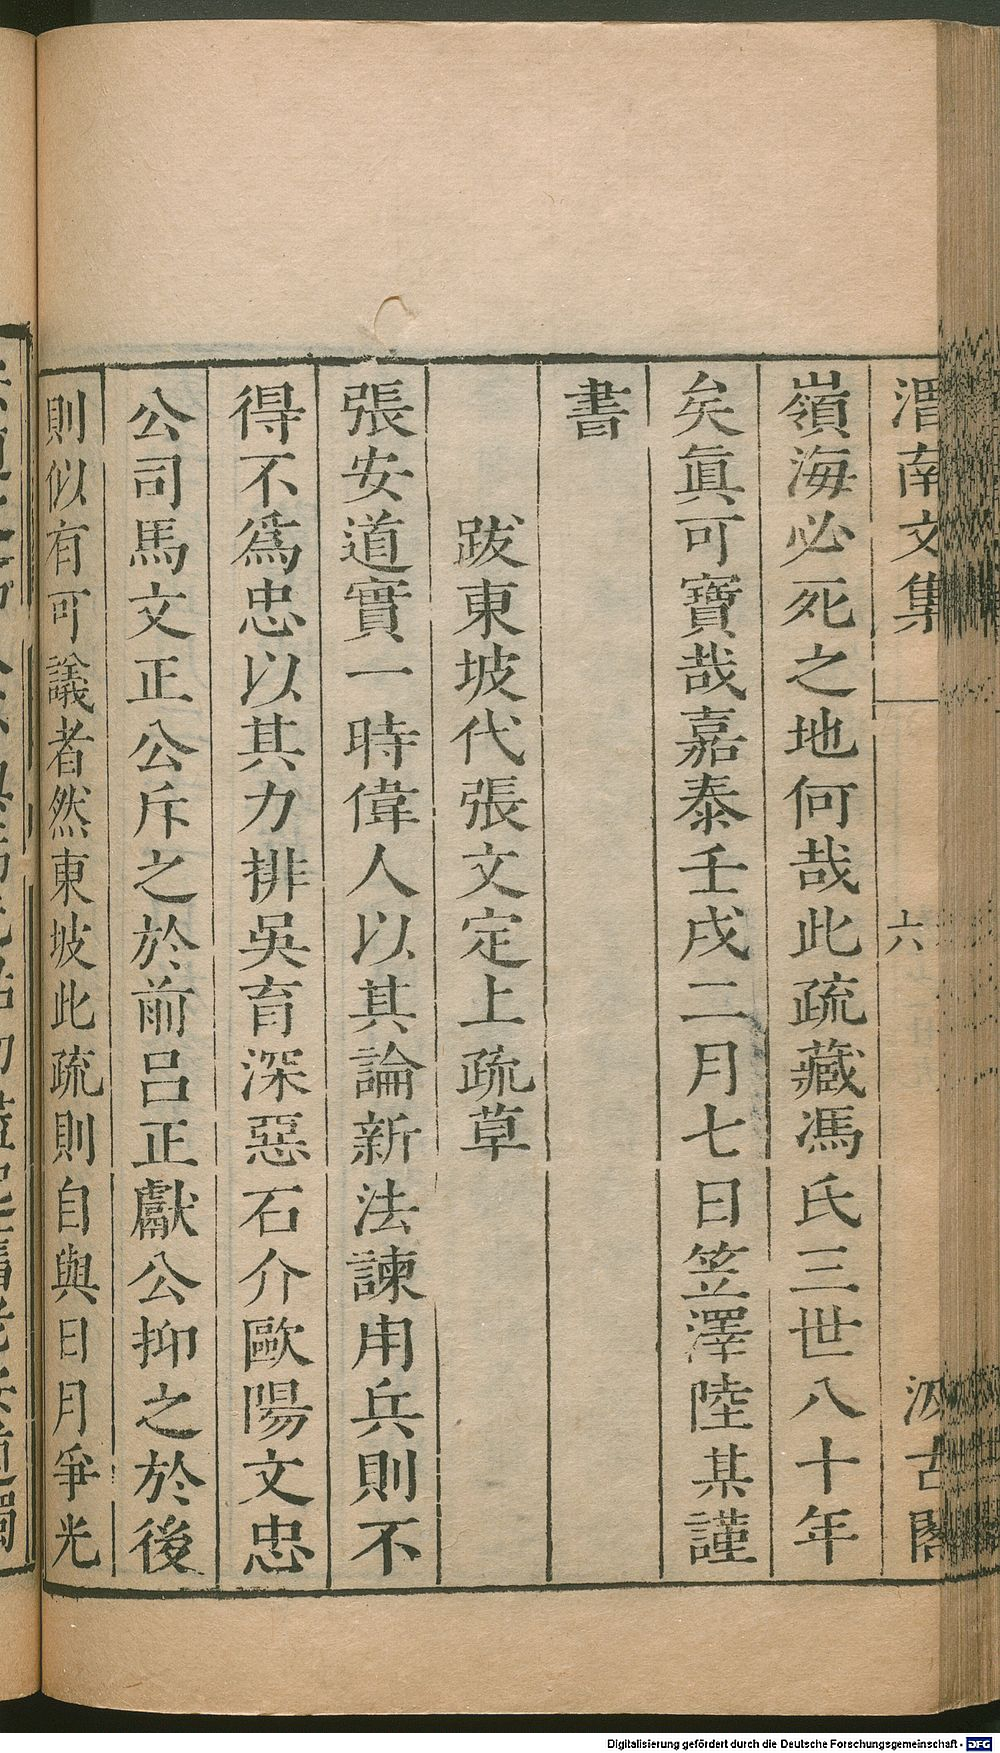 渭南文集 六 汲古閣
嶺海必死之地何哉此疏藏馮氏三世八十年
矣眞可寶哉嘉泰壬戌二月七日笠澤陸某謹
書
跋東坡代張文定上疏草
張安道實一時偉人以其論新法諫用兵則不
得不爲忠以其力排吳育深惡石介歐陽文忠
公司馬文正公斥之於前呂正獻公抑之於後
則似有可議者然東坡此疏則自與日月爭光
Digitalisierung gefördert durch die Deutsche Forschungsgemeinschaft - DFG